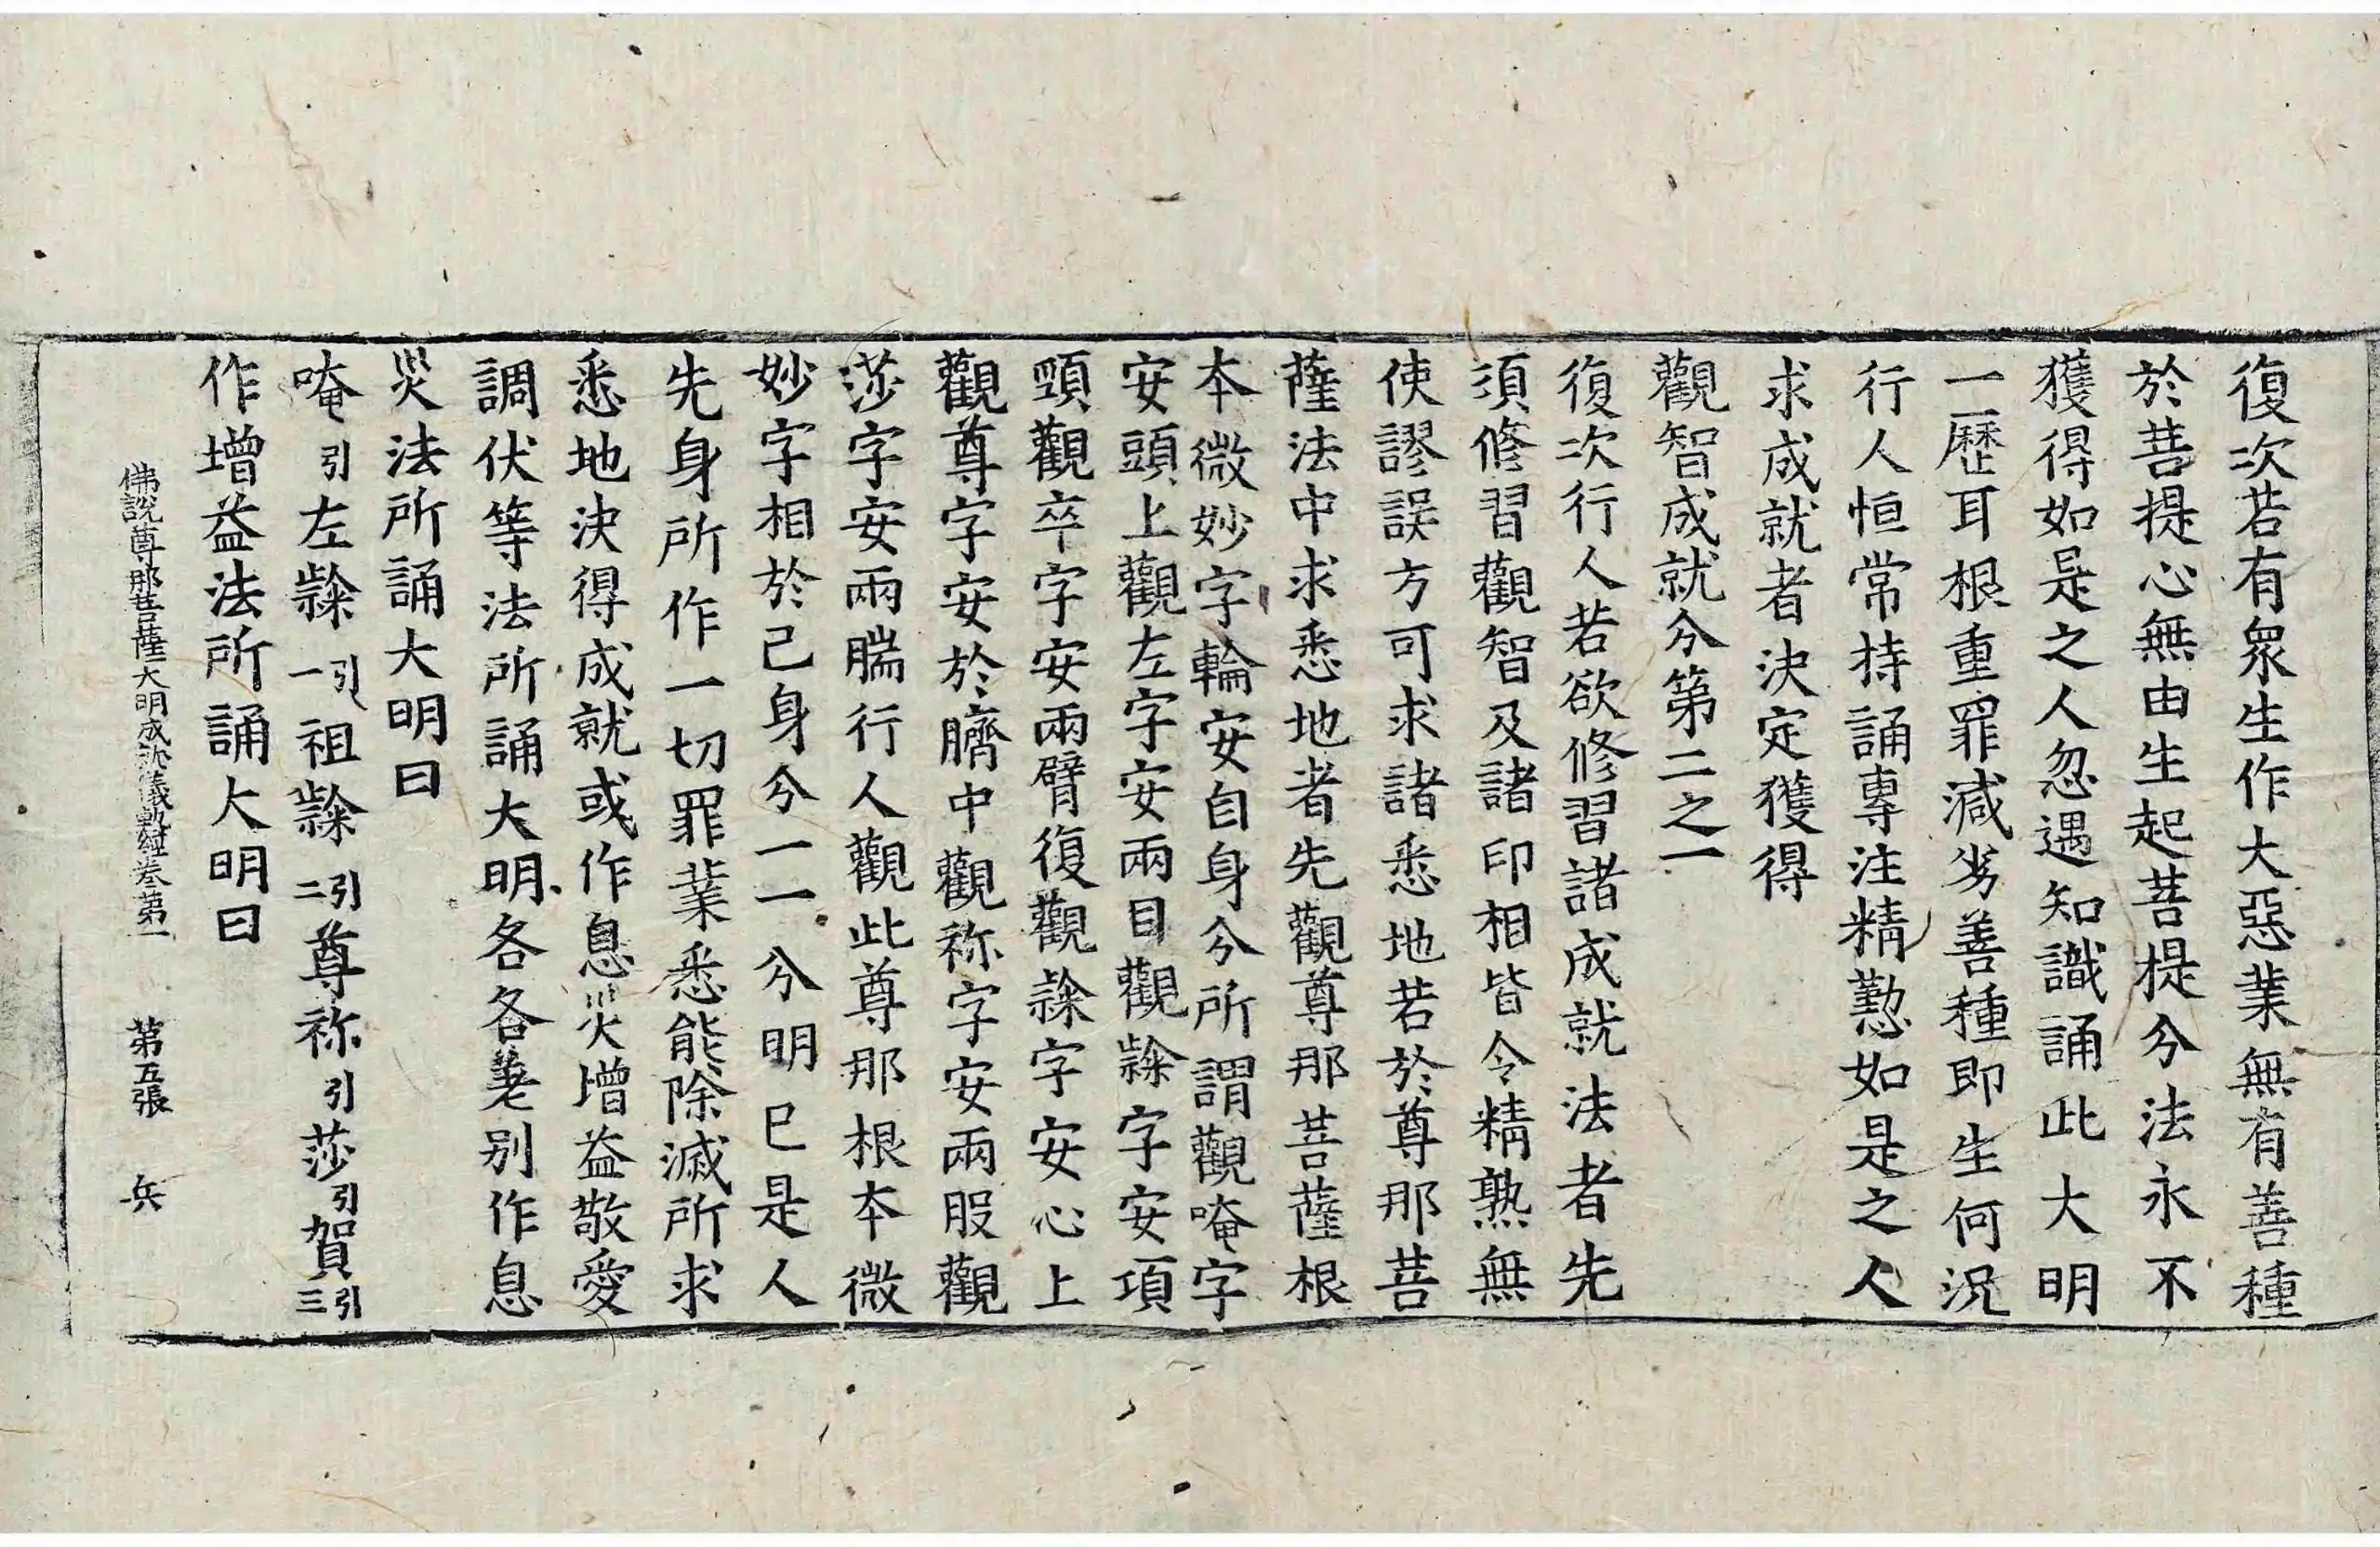 復次若有衆生作大惡業無有善種
於菩提心無由生起菩提分法永不
獲得如是之人忽遇知識誦此大明
一歷耳根重罪減劣善種即生何況
行人恒常持誦專注精懃如是之人
求成就者決定獲得
觀智成就分第二之一
復次行人若欲修習諸成就法者先
須修習觀智及諸印相皆令精熟無
使謬誤方可求諸悉地若於尊那菩
薩法中求悉地者先觀尊那菩薩根
本微妙字輪安自身分所謂觀唵字
安頭上觀左字安兩目觀隸字安項
頸觀卒字安兩臂復觀隸字安心上
觀尊字安於臍中觀祢字安兩股觀
莎字安兩腨行人觀此尊那根本微
妙字相於己身分一一分明巳是人
先身所作一切罪業悉能除滅所求
悉地決得成就或作息災增益敬愛
調伏等法所誦大明各各差别作息
災法所誦大明曰
唵引左隸引一祖隸引二尊祢引莎引賀引三
佛說尊那菩薩大明成就儀軌經卷第一 第五張 兵
作增益法所誦大明曰